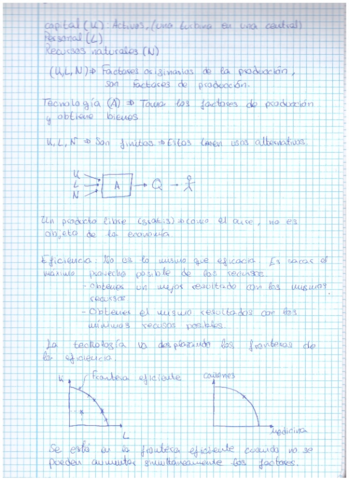 capital (K) Activos, (una butaca en una central)
Personal (L)
Recursos naturales (N)
(K, L, N) ⇒ Factores originarios de la producción,
son factores de producción.
Tecnología (A) ⇒ Toma los factores de producción
y obtiene bienes
K, L, N ⇒ Son finitos ⇒ Ellos tienen usos alternativos
K
L
N
A
Q
Un producto libre (gratis) ⇒ como el aire, no es
objeto de la economía
Eficiencia No es lo mismo que eficacia. Es sacar el
máximo provecho posible de los recursos
- obtener un mejor resultado con los mismos
recursos
- Obtener el mismo resultados con los
mínimos recursos posibles.
La tecnología va desplazando las fronteras de
la eficiencia.
K
Frontera eficiente
cañones
L
medicina
Se está en la frontera eficiente cuando no se
pueden aumentar simultaneamente los factores.